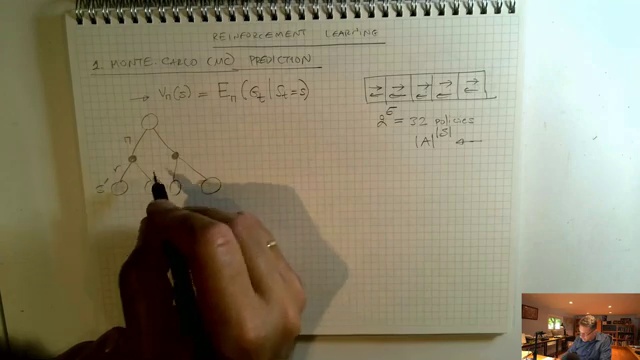 REINFORCEMENT LEARNING
1. MONTE-CARLO (MC) PREDICTION
→ vπ(s) = Eπ(Gt | St = s)
2^5 = 32 policies
|A|^|S| ←
π
r
s'